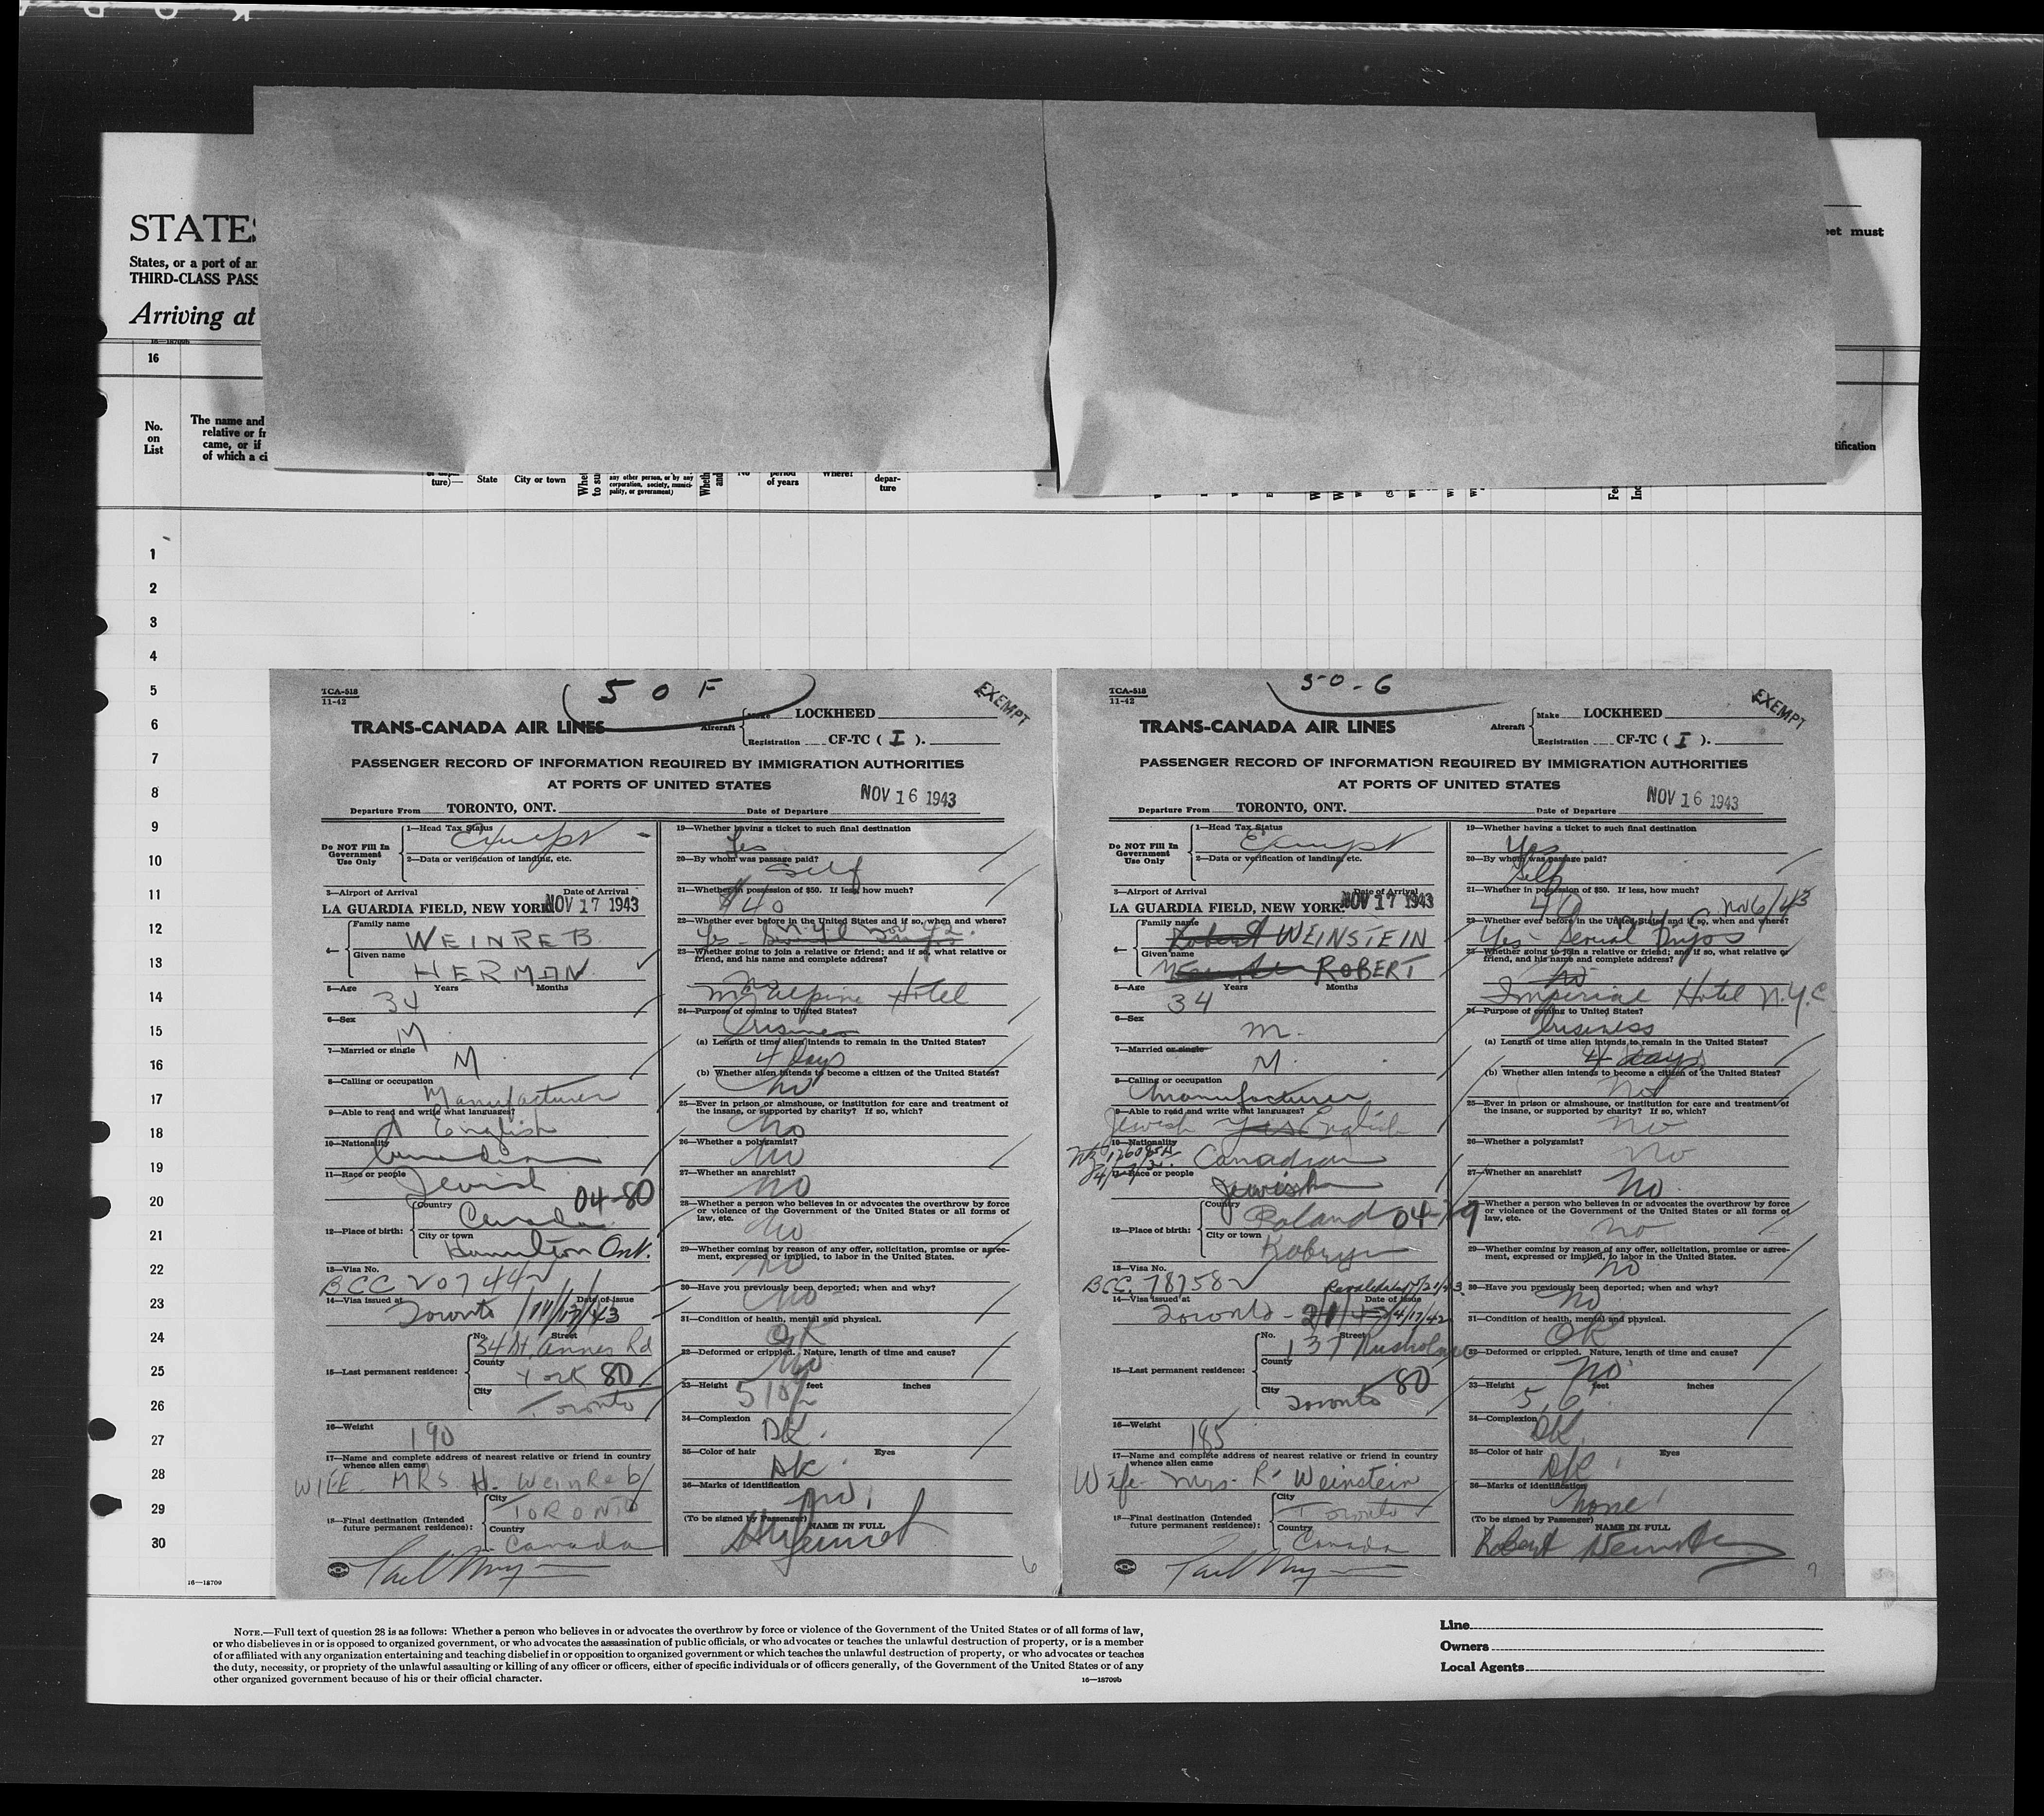 STATES
States, or a port of an
THIRD-CLASS PASS
Arriving at
eet must
16—18709b
16
No.
on
List
The name and
relative or fr
came, or if
of which a ci
tification
ture)—
State
City or town
any other person, or by any
corporation, society, munici-
pality, or government)
period
of years
Where?
depar-
ture
1
2
3
4
5
6
7
8
9
10
11
12
13
14
15
16
17
18
19
20
21
22
23
24
25
26
27
28
29
30
16—18709
TCA-518
11-42
50F
EXEMPT
TRANS-CANADA AIR LINES
Aircraft
Make LOCKHEED
Registration CF-TC ( I ).
PASSENGER RECORD OF INFORMATION REQUIRED BY IMMIGRATION AUTHORITIES
AT PORTS OF UNITED STATES
NOV 16 1943
Departure From TORONTO, ONT. Date of Departure
Do NOT Fill In
Government
Use Only
1—Head Tax Status
Exempt
2—Data or verification of landing, etc.
3—Airport of Arrival Date of Arrival
LA GUARDIA FIELD, NEW YORK. NOV 17 1943
4—
Family name
WEINREB
Given name
HERMAN
5—Age Years Months
34
6—Sex
M
7—Married or single
M
8—Calling or occupation
Manufacturer
9—Able to read and write what languages?
English
10—Nationality
Canadian
11—Race or people
Jewish
04-80
12—Place of birth:
Country
Canada
City or town
Hamilton Ont.
13—Visa No.
BCC 207442
14—Visa issued at Date of issue
Toronto 11/17/43
15—Last permanent residence:
No. Street
34 St. Annes Rd
County
York 80
City
Toronto
16—Weight
190
17—Name and complete address of nearest relative or friend in country
whence alien came
WIFE. MRS H. Weinreb
18—Final destination (Intended
future permanent residence):
City
TORONTO
Country
Canada
19—Whether having a ticket to such final destination
Yes
20—By whom was passage paid?
Self
21—Whether in possession of $50. If less, how much?
$40
22—Whether ever before in the United States and if so, when and where?
Yes
23—Whether going to join a relative or friend; and if so, what relative or
friend, and his name and complete address?
no
McAlpine Hotel
24—Purpose of coming to United States?
Business
(a) Length of time alien intends to remain in the United States?
4 days
(b) Whether alien intends to become a citizen of the United States?
no
25—Ever in prison or almshouse, or institution for care and treatment of
the insane, or supported by charity? If so, which?
No
26—Whether a polygamist?
No
27—Whether an anarchist?
No
28—Whether a person who believes in or advocates the overthrow by force
or violence of the Government of the United States or all forms of
law, etc.
No
29—Whether coming by reason of any offer, solicitation, promise or agree-
ment, expressed or implied, to labor in the United States.
No
30—Have you previously been deported; when and why?
No
31—Condition of health, mental and physical.
OK
32—Deformed or crippled. Nature, length of time and cause?
No
33—Height feet inches
5 10½
34—Complexion
DK.
35—Color of hair Eyes
DK.
36—Marks of identification
no
(To be signed by Passenger)
NAME IN FULL
6
TCA-518
11-42
50-G
EXEMPT
TRANS-CANADA AIR LINES
Aircraft
Make LOCKHEED
Registration CF-TC ( I ).
PASSENGER RECORD OF INFORMATION REQUIRED BY IMMIGRATION AUTHORITIES
AT PORTS OF UNITED STATES
NOV 16 1943
Departure From TORONTO, ONT. Date of Departure
Do NOT Fill In
Government
Use Only
1—Head Tax Status
Exempt
2—Data or verification of landing, etc.
3—Airport of Arrival Date of Arrival
LA GUARDIA FIELD, NEW YORK. NOV 17 1943
4—
Family name
Robert WEINSTEIN
Given name
ROBERT
5—Age Years Months
34
6—Sex
m.
7—Married or single
M.
8—Calling or occupation
manufacturer
9—Able to read and write what languages?
Jewish Yes English
10—Nationality
Canadian
11—Race or people
Jewish
12—Place of birth:
Country
Poland 04-79
City or town
Kobryn
13—Visa No.
BCC. 78758
14—Visa issued at Date of issue
Toronto 4/17/42
15—Last permanent residence:
No. Street
137 Rusholme
County
80
City
Toronto
16—Weight
185
17—Name and complete address of nearest relative or friend in country
whence alien came
Wife Mrs. R. Weinstein
18—Final destination (Intended
future permanent residence):
City
Toronto
Country
Canada
19—Whether having a ticket to such final destination
Yes
20—By whom was passage paid?
Self
21—Whether in possession of $50. If less, how much?
40
Nov 6/43
22—Whether ever before in the United States and if so, when and where?
Yes Serial Trips
23—Whether going to join a relative or friend; and if so, what relative or
friend, and his name and complete address?
no
Imperial Hotel N.Y.C
24—Purpose of coming to United States?
business
(a) Length of time alien intends to remain in the United States?
4 days
(b) Whether alien intends to become a citizen of the United States?
Not
25—Ever in prison or almshouse, or institution for care and treatment of
the insane, or supported by charity? If so, which?
No
26—Whether a polygamist?
No
27—Whether an anarchist?
No
28—Whether a person who believes in or advocates the overthrow by force
or violence of the Government of the United States or all forms of
law, etc.
No
29—Whether coming by reason of any offer, solicitation, promise or agree-
ment, expressed or implied, to labor in the United States.
No
30—Have you previously been deported; when and why?
No
31—Condition of health, mental and physical.
OK
32—Deformed or crippled. Nature, length of time and cause?
no
33—Height feet inches
5, 6
34—Complexion
DK
35—Color of hair Eyes
DK
36—Marks of identification
none
(To be signed by Passenger)
NAME IN FULL
Robert Weinstein
7
NOTE.—Full text of question 28 is as follows: Whether a person who believes in or advocates the overthrow by force or violence of the Government of the United States or of all forms of law,
or who disbelieves in or is opposed to organized government, or who advocates the assassination of public officials, or who advocates or teaches the unlawful destruction of property, or is a member
of or affiliated with any organization entertaining and teaching disbelief in or opposition to organized government or which teaches the unlawful destruction of property, or who advocates or teaches
the duty, necessity, or propriety of the unlawful assaulting or killing of any officer or officers, either of specific individuals or of officers generally, of the Government of the United States or of any
other organized government because of his or their official character.
16—18709b
Line
Owners
Local Agents